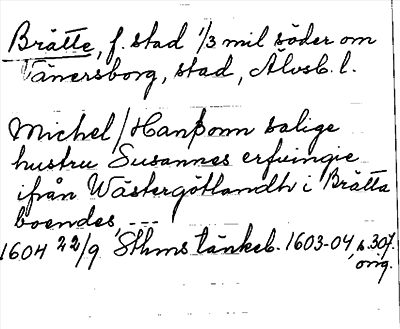 Brätte, f. stad 1/3 mil söder om
Vänersborg, stad, Älvsb. l.
Michel / Hanßonn salige
hustru Susannes erfuingie
ifrån Wästergötlandh i Brätta
boendes, ---
1604 22/9 Sthms tänkeb. 1603-04, s. 307.
orig.